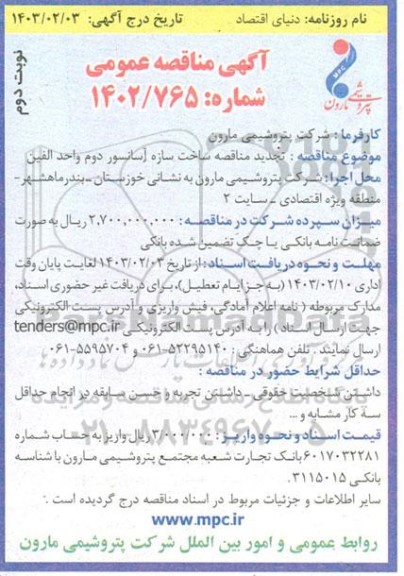 نام روزنامه: دنیای اقتصاد
تاریخ درج آگهی: ۱۴۰۳/۰۲/۰۳
آگهی مناقصه عمومی
شماره: ۱۴۰۲/۷۶۵
نوبت دوم
MPC
پتروشیمی مارون
کارفرما: شرکت پتروشیمی مارون
موضوع مناقصه: تجدید مناقصه ساخت سازه آسانسور دوم واحد الفین
محل اجرا: شرکت پتروشیمی مارون به نشانی خوزستان ـ بندرماهشهر ـ
منطقه ویژه اقتصادی ـ سایت ۲
میزان سپرده شرکت در مناقصه: ۲,۷۰۰,۰۰۰,۰۰۰ ریال به صورت
ضمانت نامه بانکی یا چک تضمین شده بانکی
مهلت و نحوه دریافت اسناد: از تاریخ ۱۴۰۳/۰۲/۰۳ لغایت پایان وقت
اداری ۱۴۰۳/۰۲/۱۰ (به جز ایام تعطیل)، برای دریافت غیر حضوری اسناد،
مدارک مربوطه (نامه اعلام آمادگی، فیش واریزی و آدرس پست الکترونیکی
جهت ارسال اسناد) را به آدرس پست الکترونیکی tenders@mpc.ir
ارسال نمایند. تلفن هماهنگی: ۰۶۱-۵۲۲۹۵۱۴۰ و ۰۶۱-۵۵۹۵۷۰۴
حداقل شرایط حضور در مناقصه:
داشتن شخصیت حقوقی ـ داشتن تجربه و حسن سابقه در انجام حداقل
سه کار مشابه و ...
قیمت اسناد و نحوه واریز: ۳/۰۰۰/۰۰۰ ریال واریز به حساب شماره
۶۰۱۷۰۳۲۲۸۱ بانک تجارت شعبه مجتمع پتروشیمی مارون با شناسه
بانکی ۳۱۱۵۰۱۵.
سایر اطلاعات و جزئیات مربوط در اسناد مناقصه درج گردیده است.
www.mpc.ir
روابط عمومی و امور بین الملل شرکت پتروشیمی مارون
۰۲۱-۸۸۳۴۹۶۷۰-۵